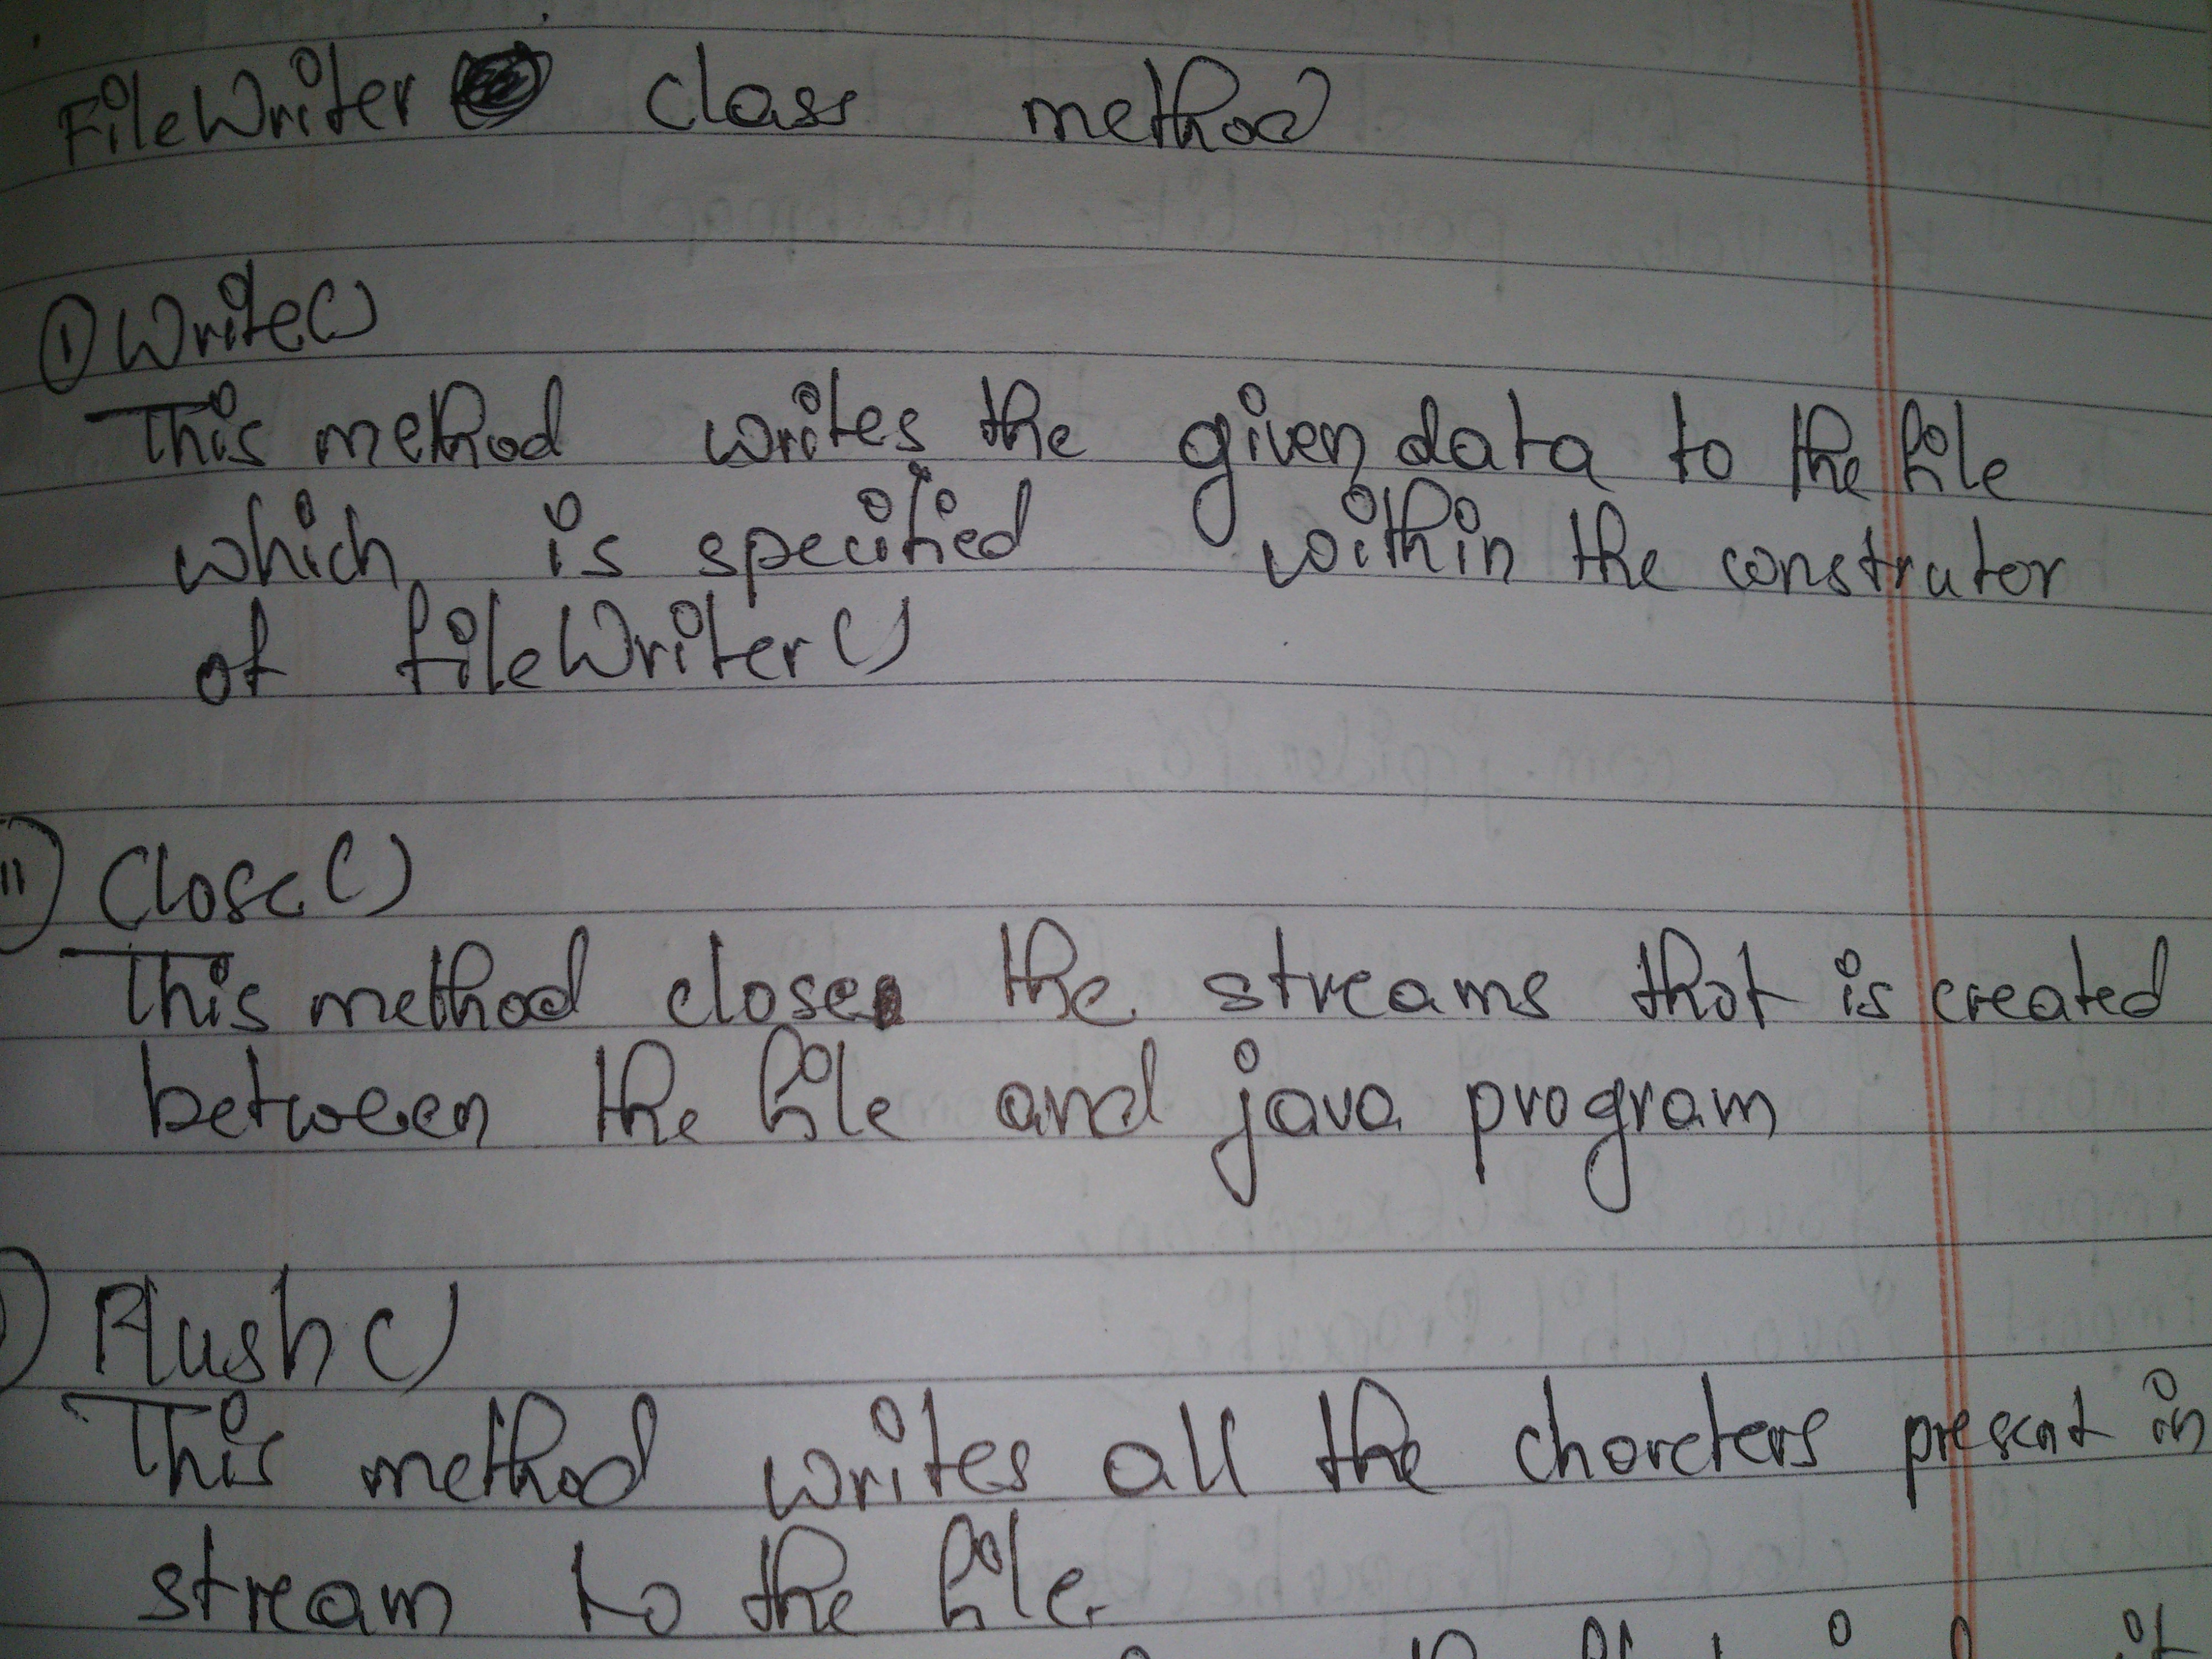 FileWriter class method
① Write()
This method writes the given data to the file
which is specified within the construtor
of fileWriter()
ii) Close()
This method closes the streams that is created
between the file and java program
) Flush()
This method writes all the chorcters present in
stream to the file.